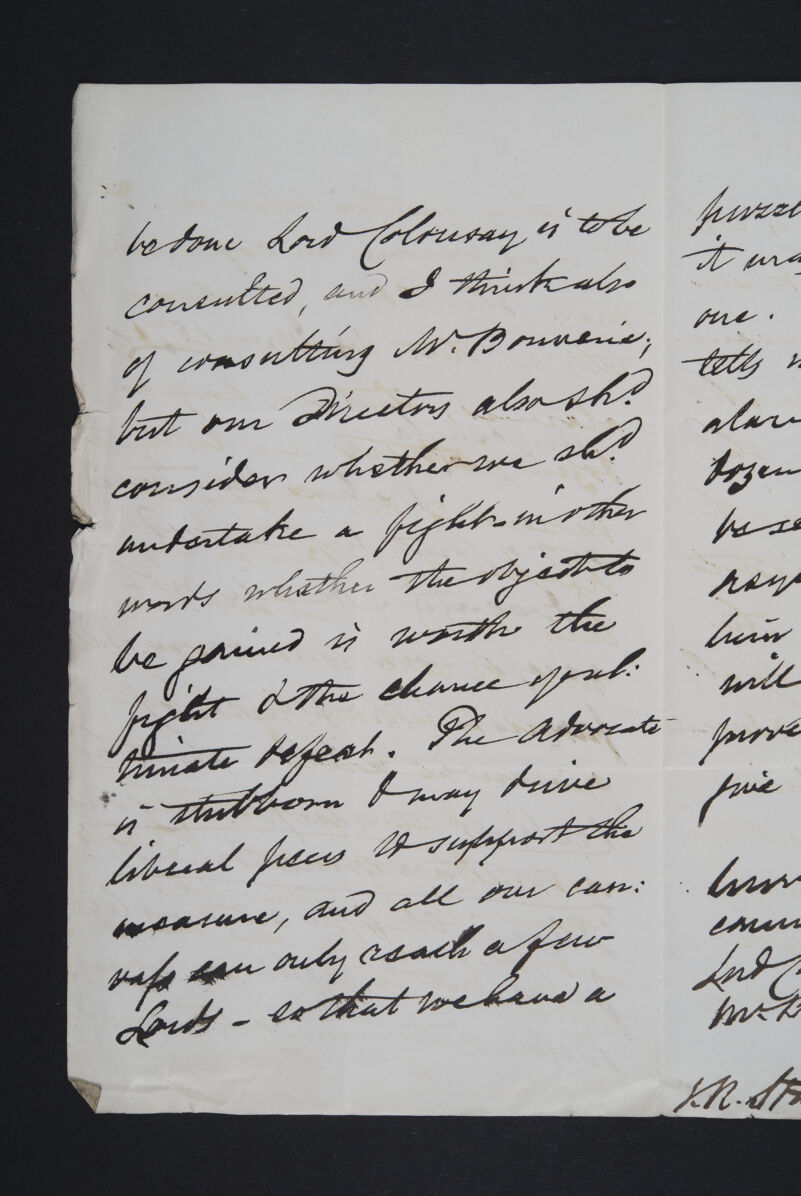 be done Lord Colonsay is to be
consulted, and I think also
of consulting Mr. Bouverie;
but our Directors also shd.
consider whether we shd.
undertake a fight - in other
words whether the object to
be gained is worth the
fight & the chance of ul:
timate defeat. The Advocate
is stubborn & may drive
liberal peers to support the
measure, and all our can:
vass can only reach a few
Lords - so that we have a
it
one.
tells
be
him
will
give
Lord
Mr.
J.R.